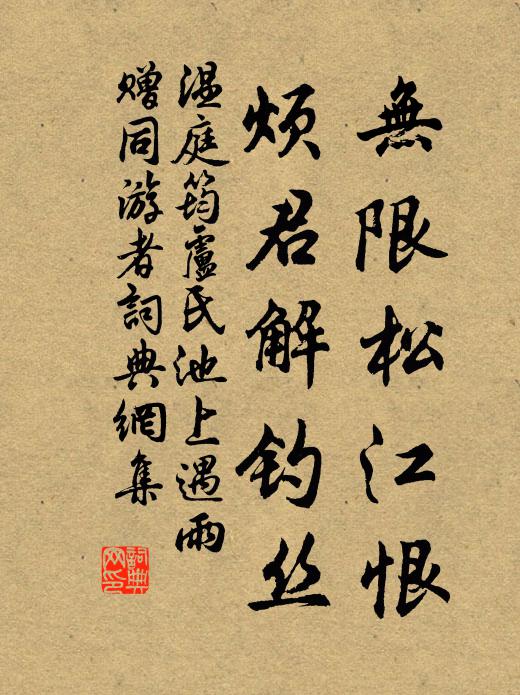 無限松江恨
煩君解钓丝
温庭筠盧氏池上遇雨
贈同游者詞典網集
詞典
网印